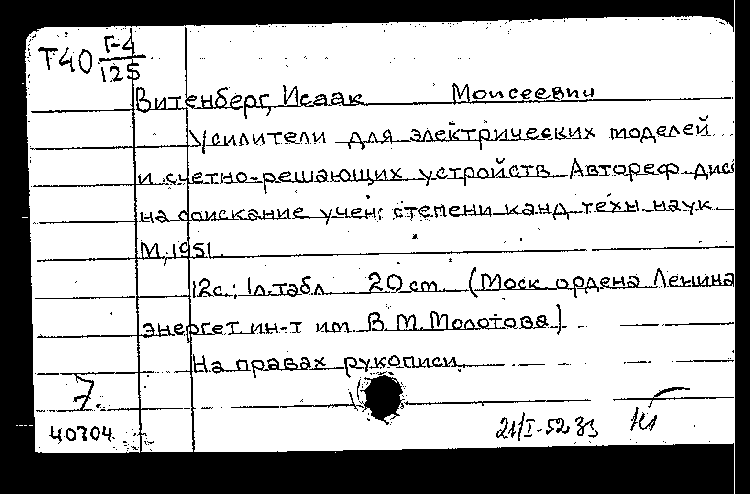 Т40 Г-4
125
Витенберг, Исаак Моисеевич
Усилители для электрических моделей
и счетно-решающих устройств Автореф. дисс
на соискание учен. степени канд. техн. наук
М, 1951.
12с.; 1л.табл 20 см (Моск ордена Ленина
энергет ин-т им В.М.Молотова)
На правах рукописи.
7.
40304
21/I-52 г.